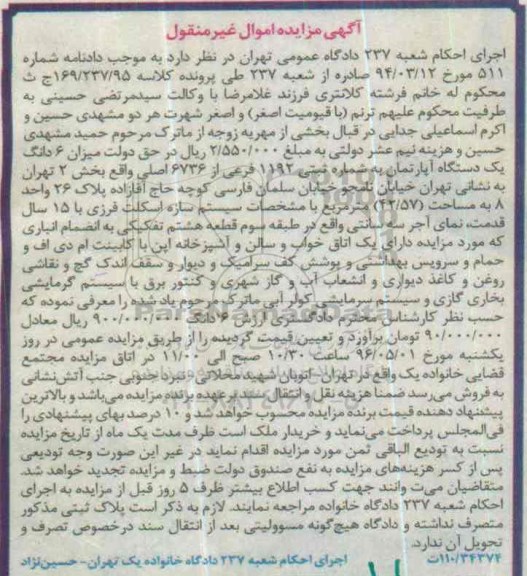 آگهی مزایده اموال غیرمنقول
اجرای احکام شعبه ۲۳۷ دادگاه عمومی تهران در نظر دارد به موجب دادنامه شماره
۵۱۱ مورخ ۹۴/۰۳/۱۲ صادره از شعبه ۲۳۷ طی پرونده کلاسه ۱۶۹/۲۳۷/۹۵ج ث
محکوم له خانم فرشته کلانتری فرزند غلامرضا با وکالت سیدمرتضی حسینی به
طرفیت محکوم علیهم ترنم (با قیومیت اصغر) و اصغر شهرت هر دو مشهدی حسین و
اکرم اسماعیلی جدایی در قبال بخشی از مهریه زوجه از ماترک مرحوم حمید مشهدی
حسین و هزینه نیم عشر دولتی به مبلغ ۲/۵۵۰/۰۰۰ ریال در حق دولت میزان ۶ دانگ
یک دستگاه آپارتمان به شماره ثبتی ۱۱۹۲ فرعی از ۶۷۳۶ اصلی واقع بخش ۲ تهران
به نشانی تهران خیابان نامجو خیابان سلمان فارسی کوچه حاج آقازاده پلاک ۲۶ واحد
۸ به مساحت (۴۲/۵۷) مترمربع با مشخصات سیستم سازه اسکلت فرزی با ۱۵ سال
قدمت، نمای آجر سه سانتی واقع در طبقه سوم قطعه هشتم تفکیکی به انضمام انباری
که مورد مزایده دارای یک اتاق خواب و سالن و آشپزخانه اپن با کابینت ام دی اف و
حمام و سرویس بهداشتی و پوشش کف سرامیک و دیوار و سقف اندک گچ و نقاشی
روغن و کاغذ دیواری و انشعاب آب و گاز شهری و کنتور برق با سیستم گرمایشی
بخاری گازی و سیستم سرمایشی کولر آبی ماترک مرحوم یاد شده را معرفی نموده که
حسب نظر کارشناس محترم دادگستری ارزش ۶ دانگ ۹۰۰/۰۰۰/۰۰۰ ریال معادل
۹۰/۰۰۰/۰۰۰ تومان برآورد و تعیین قیمت گردیده را از طریق مزایده عمومی در روز
یکشنبه مورخ ۹۶/۰۵/۰۱ ساعت ۱۰/۳۰ صبح الی ۱۱/۰۰ در اتاق مزایده مجتمع
قضایی خانواده یک واقع در تهران - اتوبان شهید محلاتی - نبرد جنوبی جنب آتش‌نشانی
به فروش می‌رسد ضمنا هزینه نقل و انتقال سند برعهده برنده مزایده می‌باشد و بالاترین
پیشنهاد دهنده قیمت برنده مزایده محسوب خواهد شد و ۱۰ درصد بهای پیشنهادی را
فی‌المجلس پرداخت می‌نماید و خریدار ملک است ظرف مدت یک ماه از تاریخ مزایده
نسبت به تودیع الباقی ثمن مورد مزایده اقدام نماید در غیر این صورت وجه تودیعی
پس از کسر هزینه‌های مزایده به نفع صندوق دولت ضبط و مزایده تجدید خواهد شد.
متقاضیان می‌ت وانند جهت کسب اطلاع بیشتر ظرف ۵ روز قبل از مزایده به اجرای
احکام شعبه ۲۳۷ دادگاه خانواده مراجعه نمایند. لازم به ذکر است پلاک ثبتی مذکور
متصرف نداشته و دادگاه هیچ‌گونه مسوولیتی بعد از انتقال سند درخصوص تصرف و
تحویل آن ندارد.
۱۱۰/۳۴۳۷۴ت اجرای احکام شعبه ۲۳۷ دادگاه خانواده یک تهران- حسین‌نژاد